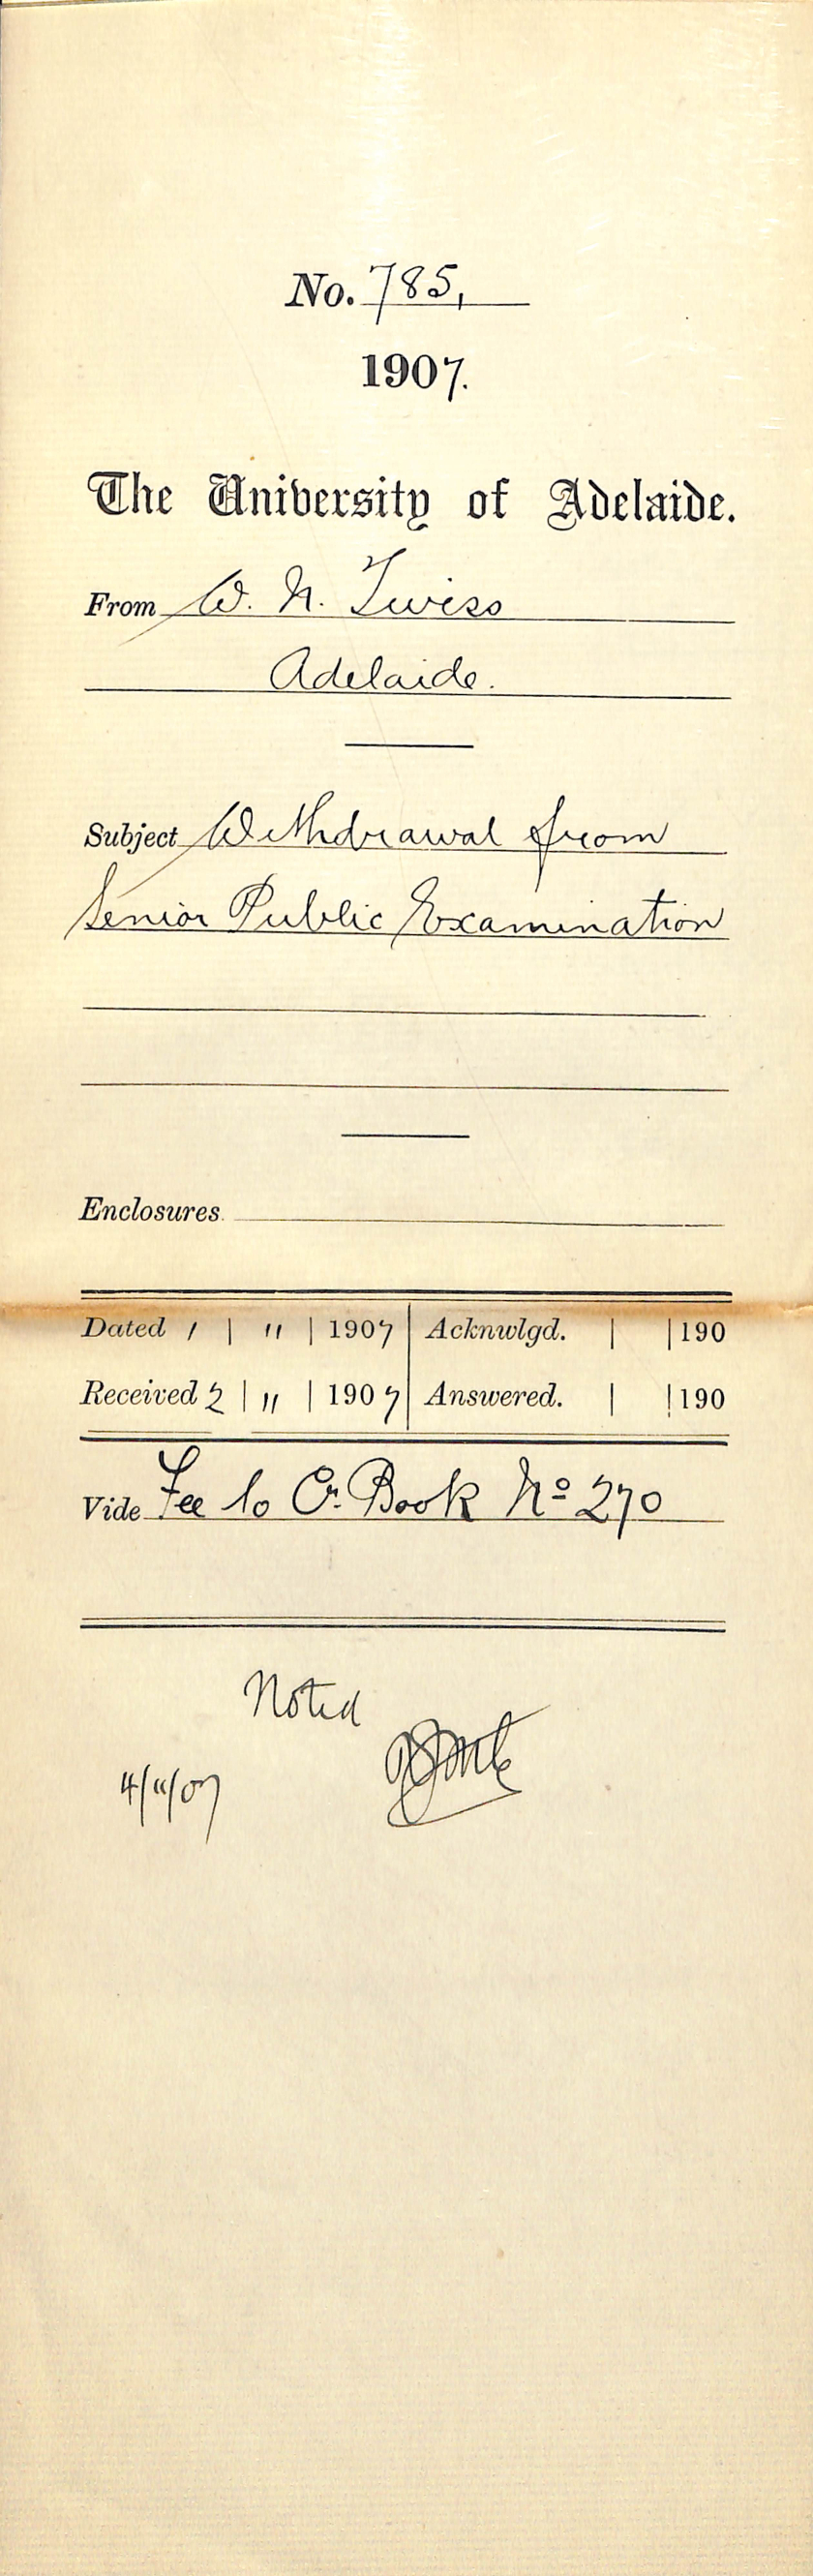 No. 785,
1907.
The University of Adelaide.
From W. N. Twiss
Adelaide.
Subject Withdrawal from
Senior Public Examination
Enclosures
Dated 1 | 11 | 1907 | Acknwlgd. | | 190
Received 2 | 11 | 1907 | Answered. | | 190
Vide Fee to Cr. Book No 270
Noted
4/11/07